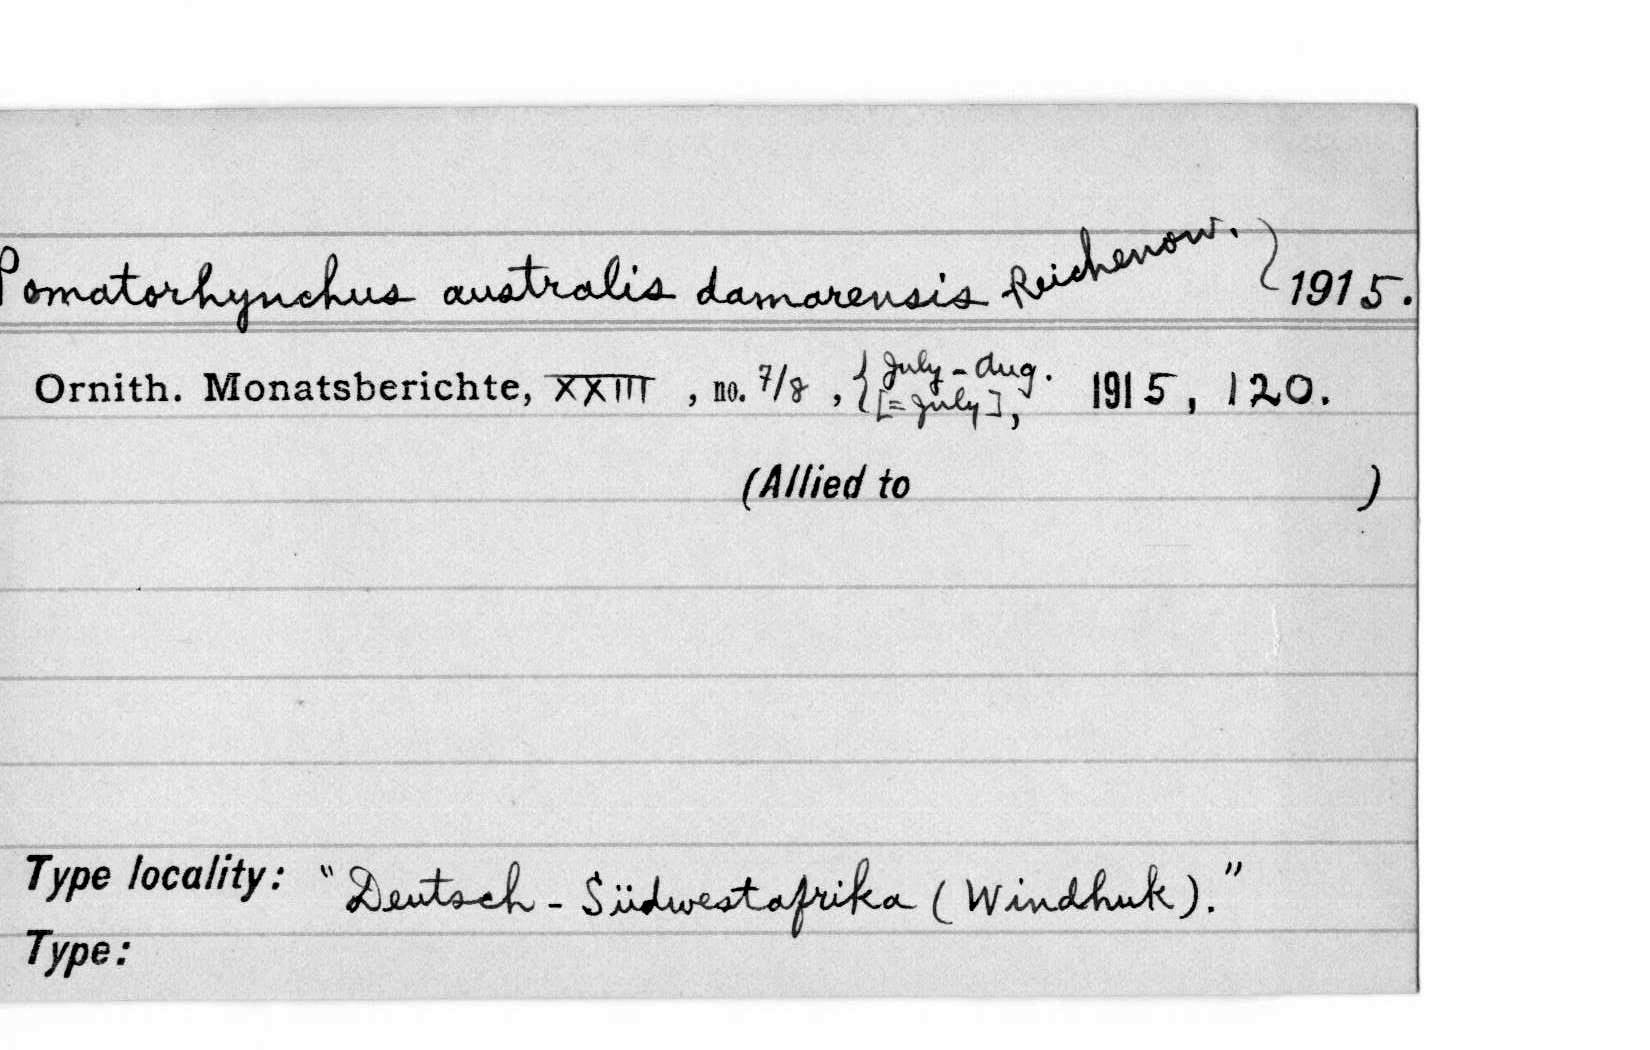 Pomatorhynchus australis damarensis Reichenow. } 1915.
Ornith. Monatsberichte, XXIII , no. 7/8 , { July - Aug. [= July], 1915, 120.
(Allied to )
Type locality: "Deutsch - Südwestafrika (Windhuk)."
Type: